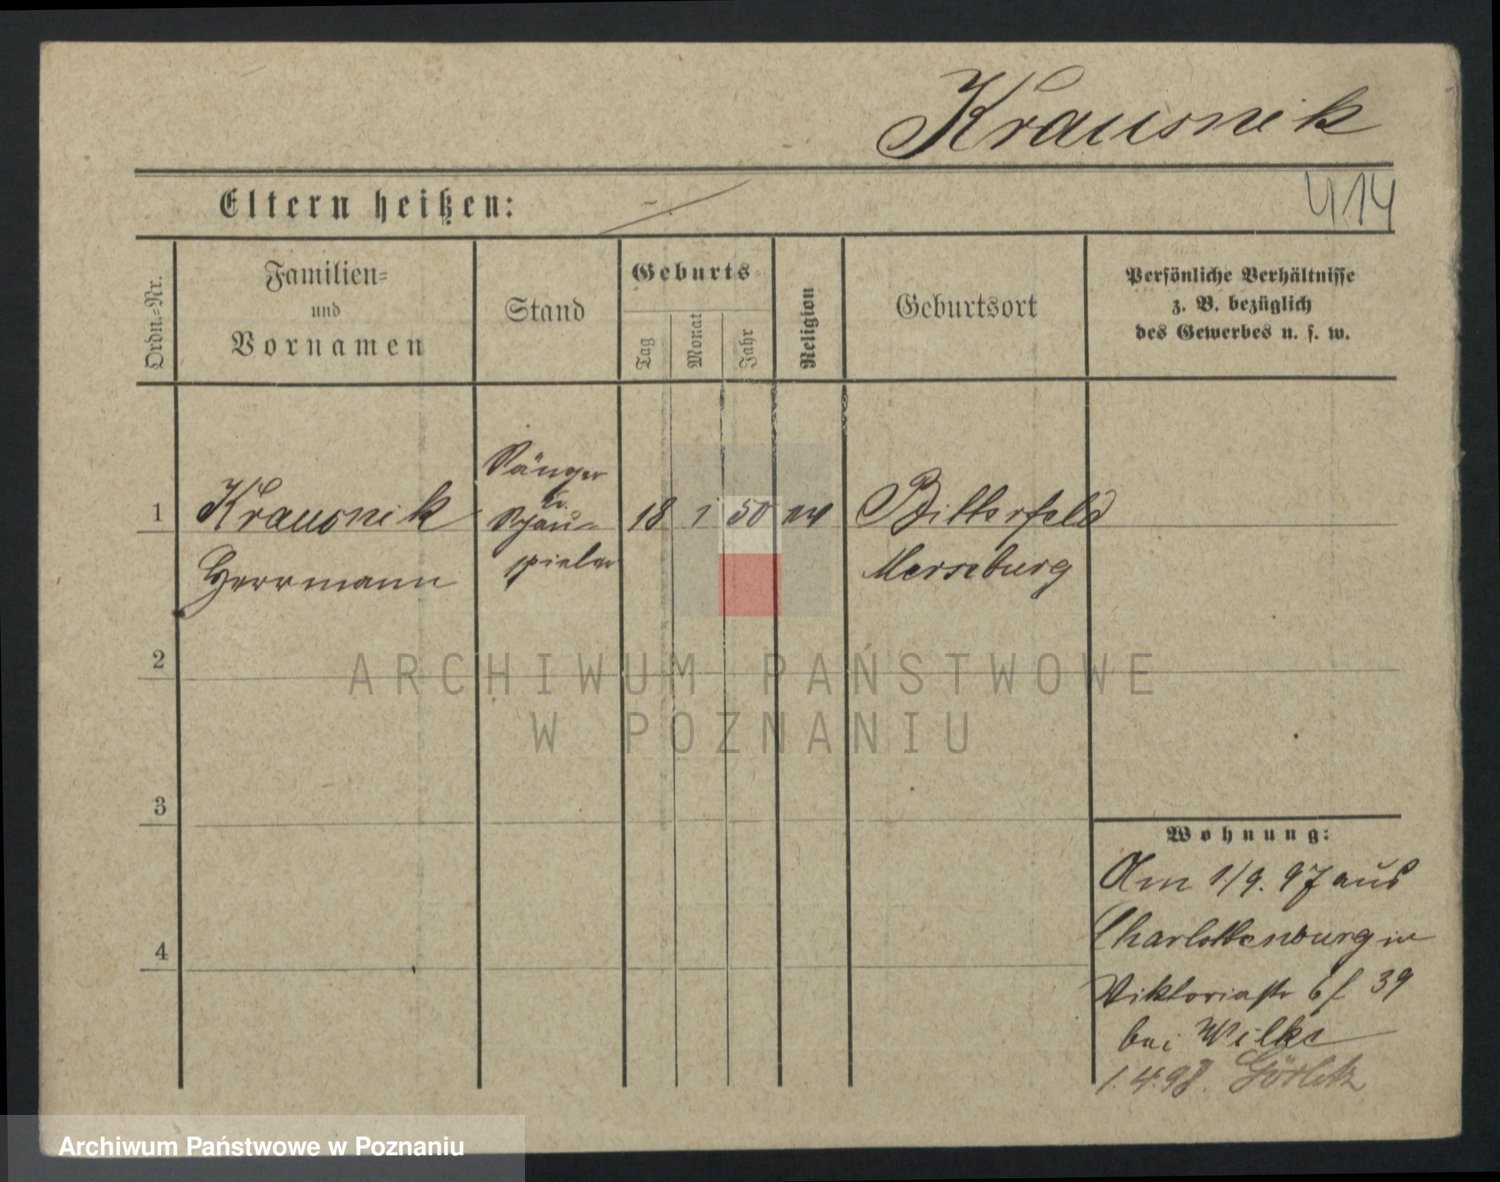 Krausnik
414
Eltern heißen:
Ordn.-Nr.
Familien-
und
Vornamen
Stand
Geburts-
Tag
Monat
Jahr
Religion
Geburtsort
Persönliche Verhältnisse
z. B. bezüglich
des Gewerbes u. s. w.
1
Krausnik
Herrmann
Sänger
u.
Schau-
spieler
18
1
50
ev
Bitterfeld
Merseburg
2
3
4
ARCHIWUM PAŃSTWOWE
W POZNANIU
Wohnung:
Am 1/9. 97 aus
Charlottenburg in
Viktoriastr 39
bei Wilke
1.4.98. Görlitz
Archiwum Państwowe w Poznaniu